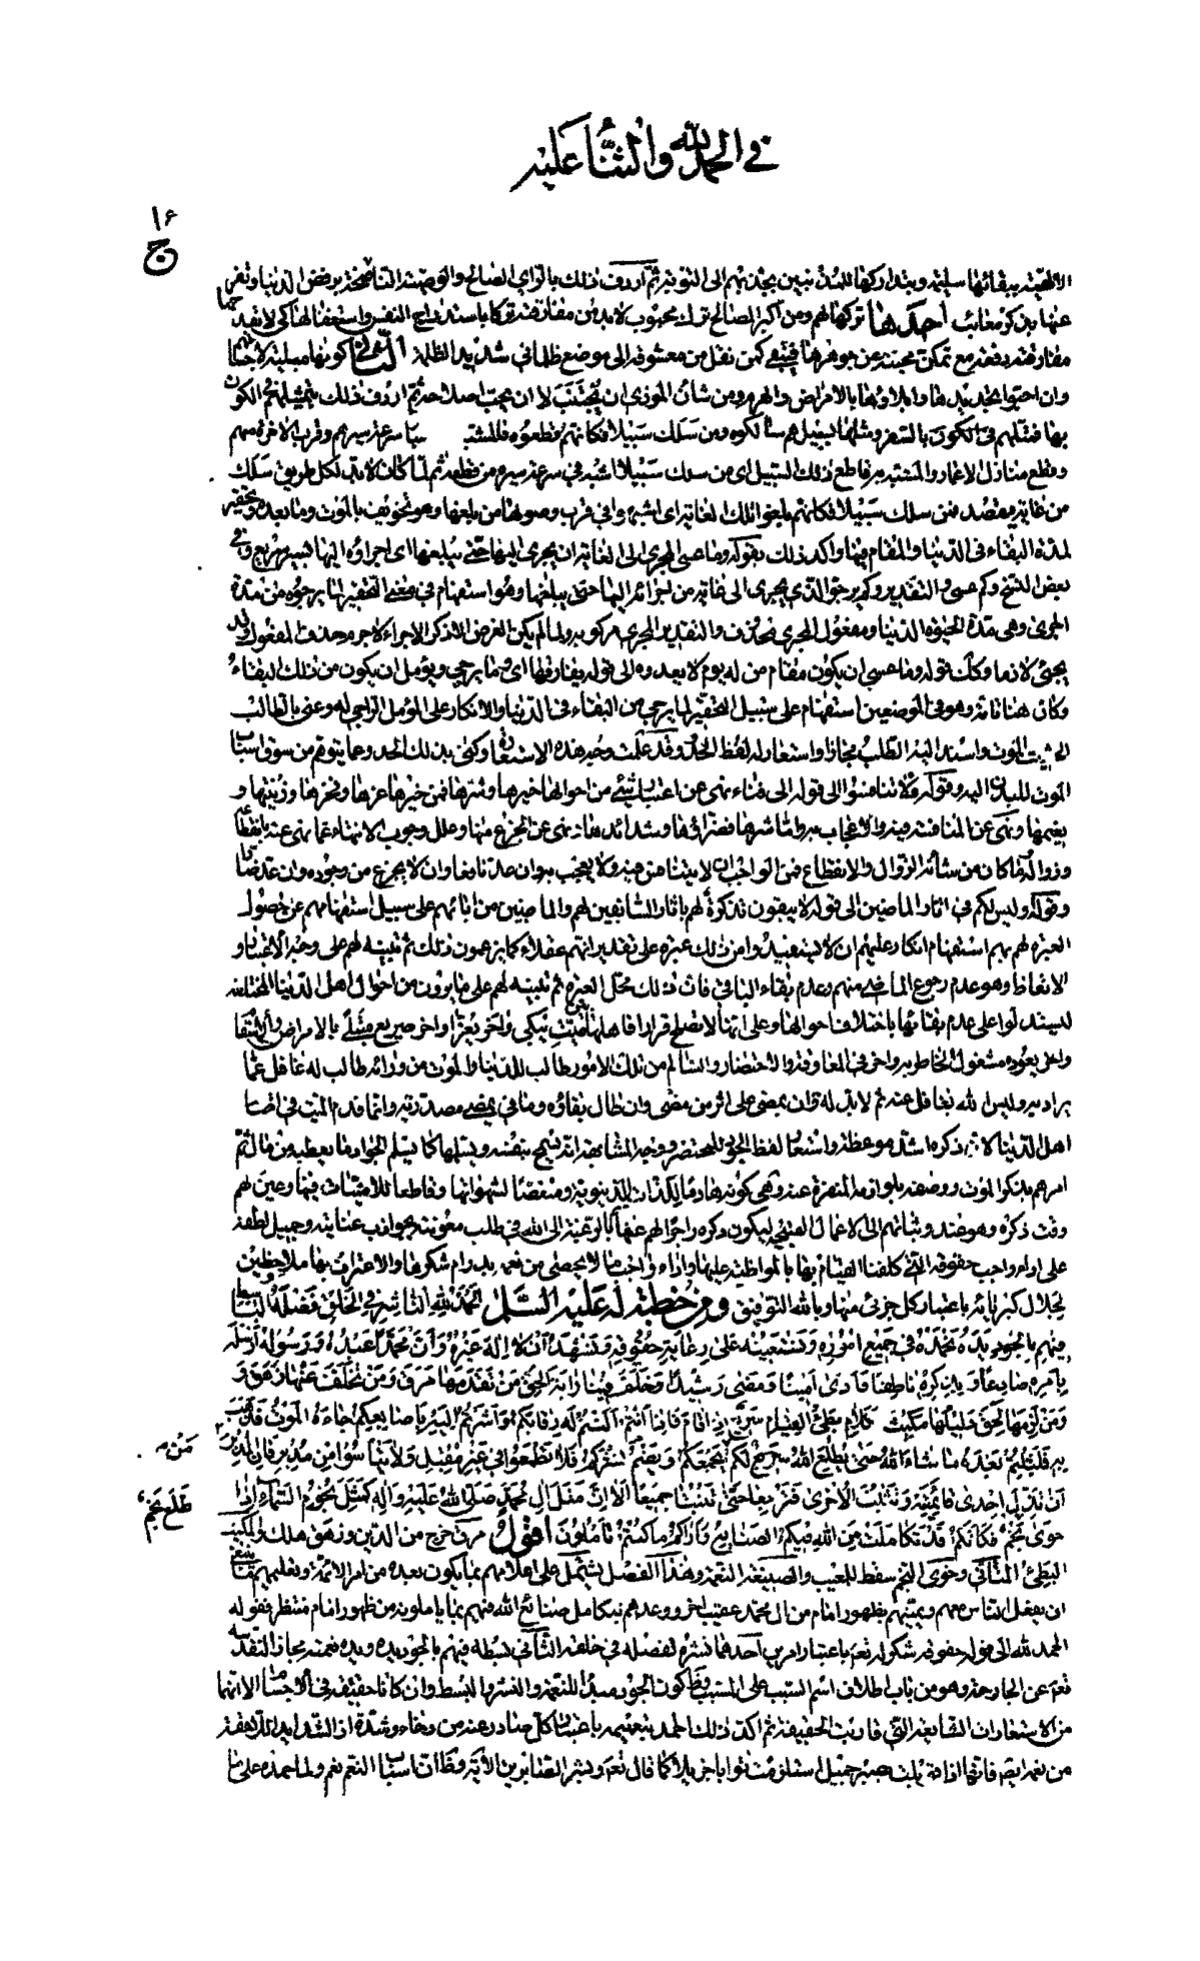 في الحمد لله والثناء عليه
١٦
ج
عنها بذكر معائب احدها تركها لهم ومن اكبر المصالح ترك محبوب لابد من مفارقته تركا باستدراج النفس واستغفالها كي لا يفدحها
مفارقته دفعة مع تمكن محبته عن جوهرها فيبقى كمن نقل من معشوقه الى موضع ظلماني شديد الظلمة الثاني كونها مبلية لاجسامهم
وان احبوا تجديدها وابلاؤها بالامراض والهرم ومن شأن الموذي ان يجتنب لا ان يحب اصلاحه ثم اردف ذلك بتمثيلهم في الكون
بها فمثلهم في الكون بالسفر ومثلها بسبيل هم سالكوه ومن سلك سبيلا فكانهم قطعوه فالمشبه
وقطع منازل الاعمار والمشبه به قاطع ذلك السبيل اى من سلك سبيلا اشبه في سرعة سيره من قطعه ثم لما كان لابد لكل طريق سلك
من غاية يقصد فمن سلك سبيلا فكانهم بلغوا تلك الغاية اى اشبهوا في قرب وصولها من بلغها وهو تخويف بالموت وما بعده وتحقير
لمدة البقاء في الدنيا والمقام فيها واكد ذلك بقوله وما عسى المجرى الى الغاية ان يجرى اليها حتى يبلغها اى اجراؤه اليها بسير سريع وفي
بعض النسخ وكم عسى والتقدير وكم يرجو الذي يجرى الى غاية من اجرائه اليها حتى يبلغها وهو استفهام في معنى التحقير لما يرجوه من مدة
الجرى وهى مدة الحيوة الدنيا ومفعول المجرى محذوف والتقدير المجرى مركوبه ولما لم يكن الغرض الا ذكر الاجراء لا جرم حذف المفعول وقد
يجئ لازما وكذلك قوله وما عسى ان يكون مقام من له يوم لا يعدوه الى قوله يفارقها اى وما يرجى ويؤمل ان يكون من ذلك البقاء
وكان هنا تامة وهو في الموضعين استفهام على سبيل التحقير لما يرجى من البقاء في الدنيا والانكار على المؤمل الراجى له وعنى بالطالب
الحثيث الموت واسند اليه الطلب مجازا واستعار له لفظ الحدو وقد علمت وجه هذه الاستعارة وكنى بذلك الحدو عما يتوهم من سوق اسباب
الموت للبدن اليه وقوله فلا تنافسوا الى قوله الى فناء نهى عن اعتبار شئ من احوالها خيرها وشرها فمن خيرها عزها وفخرها وزينتها و
نعيمها ونهى عن المنافسة فيه والاعجاب به واما شرها فضراؤها وشدائدها نهى عن الجزع منها وعلل وجوب الانتهاء عما نهى عنه بانقطاعه
وزواله وما كان من شأنه الزوال والانقطاع فمن الواجب ان لا يتنافس فيه ولا يعجب به وان عد نافعا وان لا يجزع من وجوده وان عد ضارا
وقوله وليس لكم في اثار الماضين الى قوله لا يبقون تذكرة لهم باثار السابقين لهم والماضين من ابائهم على سبيل استفهامهم عن حصول
العبرة لهم بهم استفهام انكار عليهم ان لا يستفيدوا من ذلك عبرة على تقدير انهم عقلاء كما يزعمون ذلك ثم تنبيه لهم على وجه الاعتبار و
الاتعاظ وهو عدم رجوع الماضي منهم وعدم بقاء الباقي فان ذلك محل العبرة ثم تنبيه لهم على ما يرون من احوال اهل الدنيا المختلفة
ليستدلوا على عدم بقائها باختلاف احوالها وعلى انها لا تصلح قرارا فاهلها بين ميت يبكى واخر يعزى واخر صريع مبتلى بالامراض
واخر يعوده مشغول الخاطر به واخر في المعاوقة والاحتضار والسالم من تلك الامور طالب للدنيا والموت من ورائه طالب له غافل عما
يراد به وليس الله بغافل عنه ثم لابد له وان يمضى على اثر من مضى وان طال بقاؤه وما في يمضى مصدرية وانما قدم الميت في اقسام
اهل الدنيا لان ذكره اشد موعظة واستعار لفظ الجود للمحتضر ووجه المشابهة انه يسمح بنفسه ويسلمها كما يسلم الجواد ما يعطيه من مال ثم
امرهم بذكر الموت ووصفه بلوازمه المنفرة عنه وهى كونه هادما للذات الدنيوية ومنغصا لشهواتها وقاطعا للامنيات فيها وعين لهم
وقت ذكره وهو عند وثباتهم الى الاعمال القبيحة ليكون ذكره زاجرا لهم عنها ثم بالرغبة الى الله في طلب معونته بجواذب عنايته وجميل لطفه
على اداء واجب حقوقه التي كلفنا القيام بها بالمواظبة عليها واداء واجب ما لا يحصى من نعمه بدوام شكرها والاعتراف بها ملاحظين
لجلال كبريائه باعتبار كل جزئى منها وبالله التوفيق ومن خطبة له عليه السلام الحمد لله الناشر في الخلق فضله الباسط
فيهم بالجود يده نحمده في جميع اموره ونستعينه على رعاية حقوقه ونشهد ان لا اله غيره وان محمدا عبده ورسوله ارسله
بامره صادعا وبذكره ناطقا فادى امينا ومضى رشيدا وخلف فينا راية الحق من تقدمها مرق ومن تخلف عنها زهق و
ومن لزمها لحق دليلها مكيث الكلام بطئ القيام سريع اذا قام فاذا انتم النتم له رقابكم واشرتم اليه باصابعكم جاءه الموت فذهب
به فلبثتم بعده ما شاء الله حتى يطلع الله لكم من يجمعكم ويضم نشركم فلا تطمعوا في غير مقبل ولا تيأسوا من مدبر فان المدبر
من
ان تزل احدى قائمتيه وتثبت الاخرى فترجعا حتى تثبتا جميعا الا ان مثل ال محمد صلى الله عليه واله كمثل نجوم السماء اذا
طلع نجم
خوى نجم فكانكم قد تكاملت من الله فيكم الصنائع واراكم ما كنتم تاملون اقول مرق خرج من الدين وزهق هلك والمكيث
البطئ المتأني وخوى النجم سقط للمغيب والصنيعة النعمة وهذا الفصل يشتمل على اعلامهم بما يكون بعده من امر الائمة وتعليمهم ما ينبغي
ان يفعل الناس معهم ويمنيهم بظهور امام من ال محمد عقيب اخر ووعدهم بتكامل صنائع الله فيهم بما ياملونه من ظهور امام منتظر فقوله
الحمد لله الى قوله حقوقه شكر له تعالى باعتبار امرين احدهما نشره لفضله في خلقه الثاني بسطه فيهم بالجود يده ويده نعمته مجازا لتقدسه
تعالى عن الجارحة وهو من باب اطلاق اسم السبب على المسبب وظ كون الجود مبدأ للنعمة والنشر والبسط وان كانا حقيقة في الاجسام الا انهما
من الاستعارات الشايعة التي قاربت الحقيقة ثم اكد ذلك الحمد بتعميمه باعتبار كل صادر عنه من رخاء وشدة اذ الشدايد اللاحقة
من نعمه ايضا فانها اذا قوبلت بصبر جميل استلزمت ثوابا جزيلا كما قال تعالى وبشر الصابرين الاية وظ ان اسباب النعم نعم ولما حمده على ما